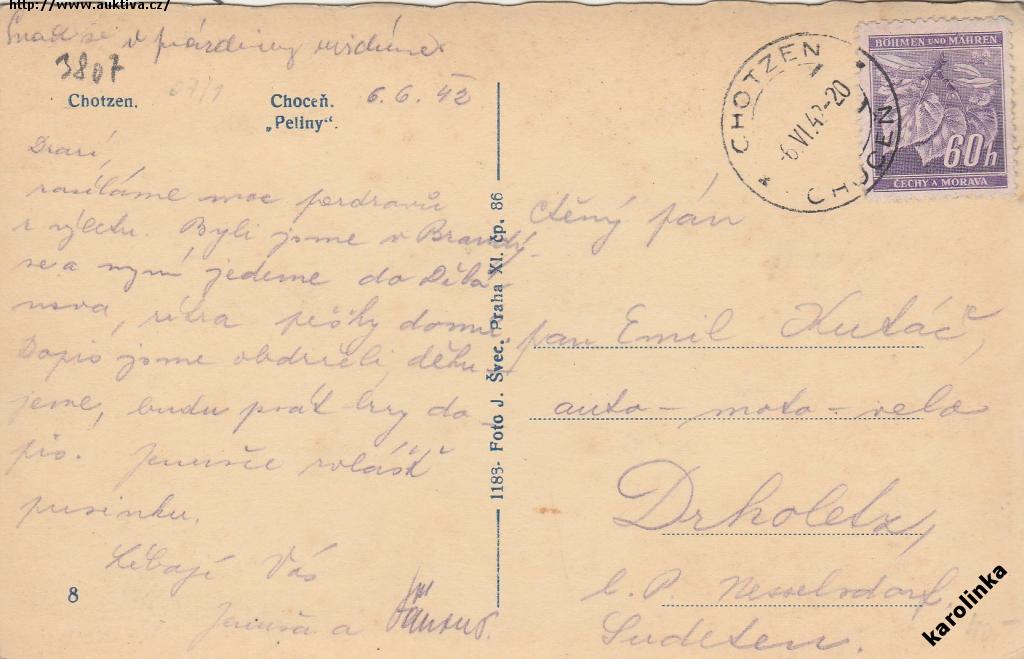 http://www.auktiva.cz/
Snad se v prázdniny uvidíme
3807
Chotzen.
Choceň.
6.6.42
„Peliny“.
Drazí,
zasíláme moc pozdravů
z výletu. Byli jsme v Brandý-
se a nyní jedeme do
pěšky domů.
Dopis jsme obdrželi, děku-
jeme, budu psát brzy do-
pis. zvlášť
pusinku.
Líbají Vás
a
8
1188- Foto J. Švec, Praha XI. čp. 86
CHOTZEN
6.VI.42-20
CHOCEŇ
BÖHMEN UND MÄHREN
60h
ČECHY A MORAVA
Ctěný pán
pan Emil Kutáč,
auto-moto-velo
Drholetz,
b. P. Nesselsdorf.
Sudeten.
karolinka